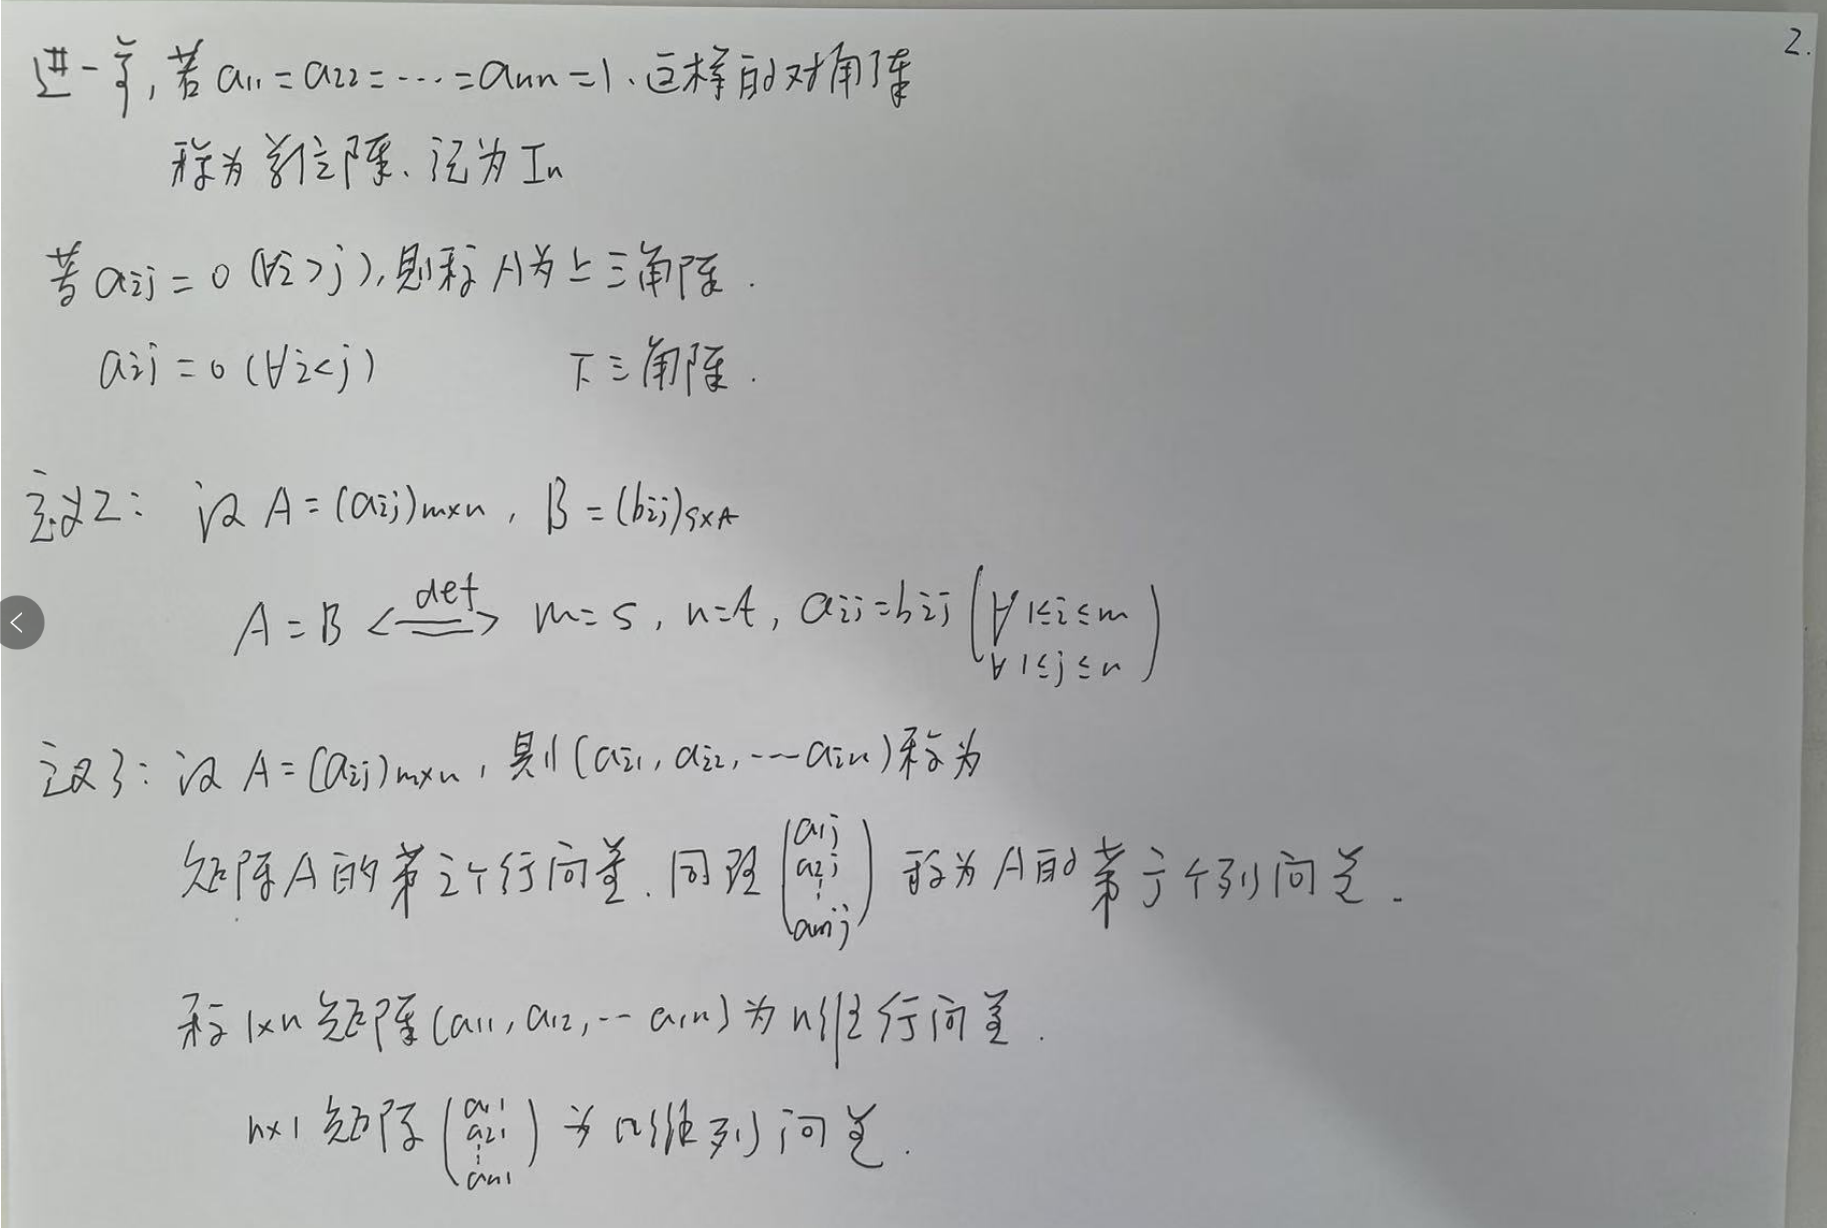 2.
进一步,若 a₁₁ = a₂₂ = ⋯ = aₙₙ = 1. 这样的对角阵
称为单位阵、记为 Iₙ
若 aᵢⱼ = 0 (∀i > j), 则称 A为上三角阵.
aᵢⱼ = 0 (∀i < j) 下三角阵.
定义2: 设 A = (aᵢⱼ)m×n, B = (bᵢⱼ)s×t
A = B <=def=> m = s, n = t, aᵢⱼ = bᵢⱼ (∀ 1≤i≤m
∀ 1≤j≤n)
定义3: 设 A = (aᵢⱼ)m×n, 则 (aᵢ₁, aᵢ₂, ⋯ aᵢₙ) 称为
矩阵A的第i个行向量. 同理 (a₁ⱼ a₂ⱼ ⋮ aₘⱼ) 称为A的第j个列向量.
称 1×n 矩阵 (a₁₁, a₁₂, ⋯ a₁ₙ) 为 n维行向量.
n×1 矩阵 (a₁₁ a₂₁ ⋮ aₙ₁) 为 n维列向量.